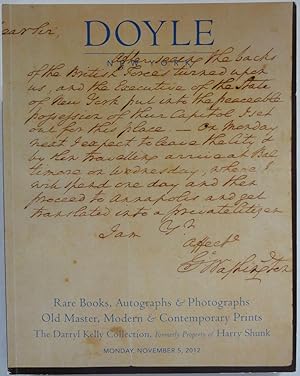 Dear Sir,
DOYLE
NEW YORK
After seeing the backs
of the British Forces turned upon
us, and the Executive of the State
of New York put into the peaceable
possession of their Capitol I set
out for this place. — On Monday
next I expect to leave the City &
by thn travelling arrive at Bal
timore on Wednesday, where I
will spend one day and then
proceed to Annapolis and get
translated into a private Citizen
I am Yr.
Affecte.
Go: Washington
Rare Books, Autographs & Photographs
Old Master, Modern & Contemporary Prints
The Darryl Kelly Collection, formerly Property of Harry Shunk
MONDAY, NOVEMBER 5, 2012